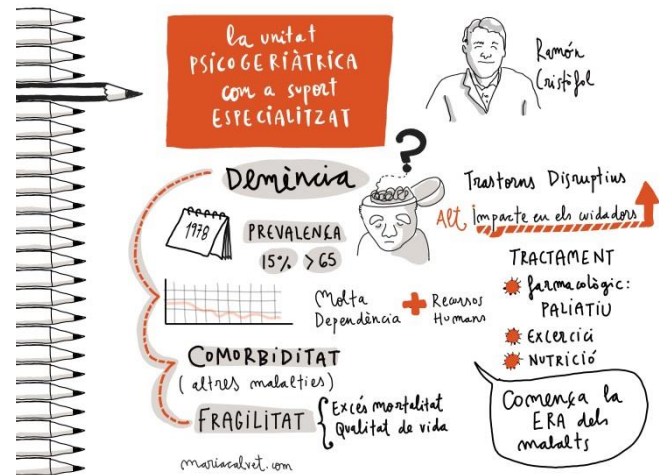 la unitat
PSICOGERIÀTRICA
com a suport
ESPECIALITZAT
Ramón
Cristòfol
Demència
?
1978
PREVALENÇA
15% >65
Trastorns Disruptius
Alt Impacte en els cuidadors
Molta
Dependència
+ Recursos
Humans
TRACTAMENT
farmacològic:
PALIATIU
EXCERCICI
NUTRICIÓ
COMORBIDITAT
(altres malalties)
FRAGILITAT
Excés mortalitat
Qualitat de vida
Comença la
ERA dels
malalts
mariacalvet.com